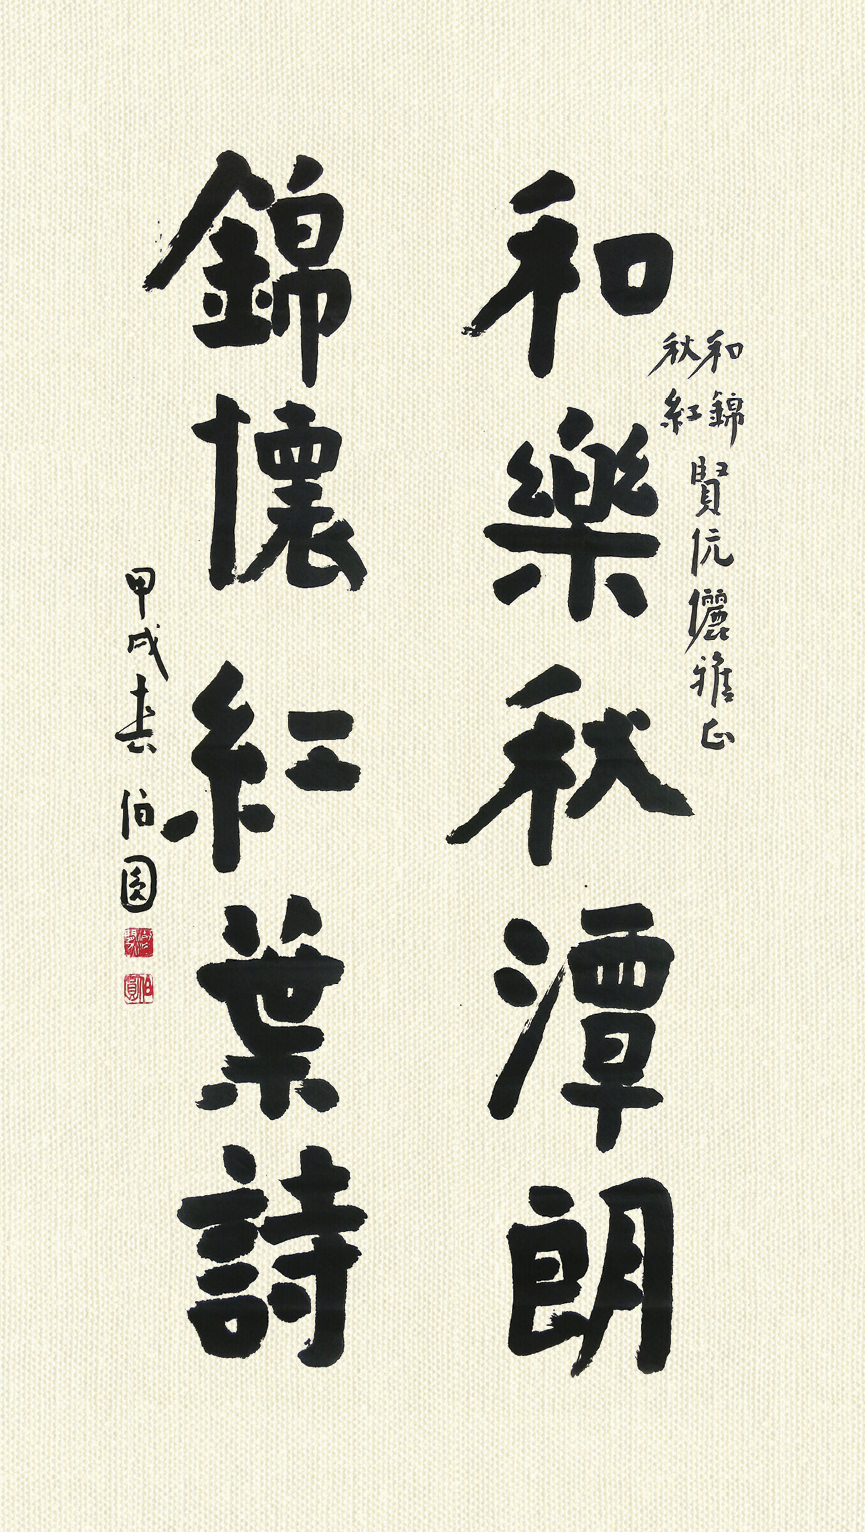 和錦
秋紅
賢伉儷雅正
和樂秋潭朗
錦懷紅葉詩
甲戌春伯圓
伯圓